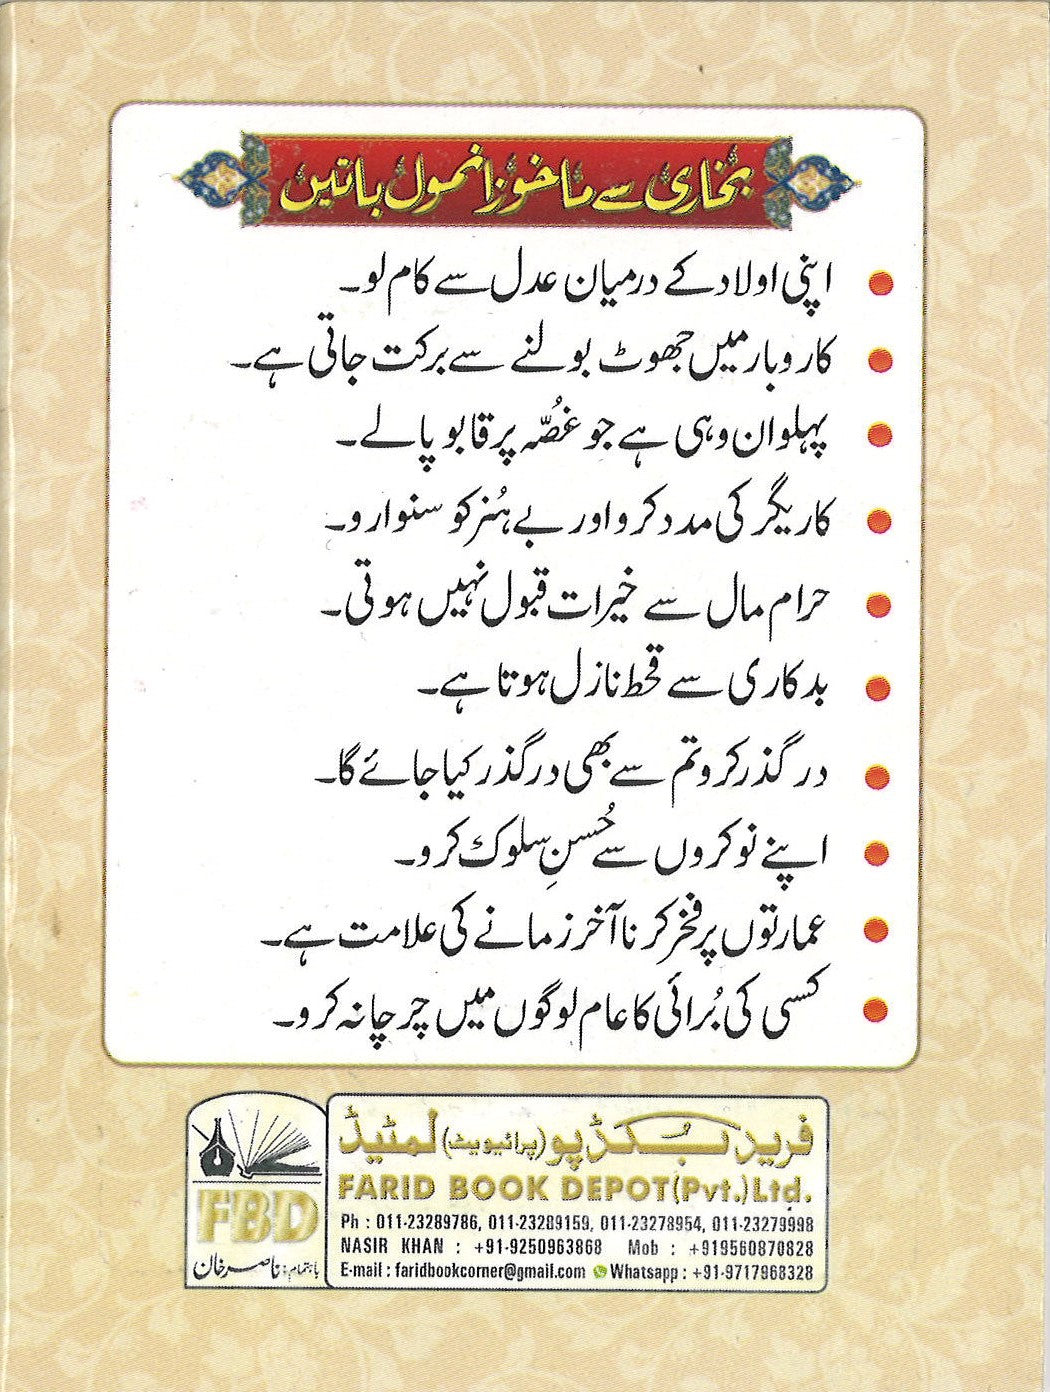 بخاری سے ماخوز انمول باتیں
اپنی اولاد کے درمیان عدل سے کام لو۔
کاروبار میں جھوٹ بولنے سے برکت جاتی ہے۔
پہلوان وہی ہے جو غصُّہ پر قابو پالے۔
کاریگر کی مدد کرو اور بے ہُنر کو سنوارو۔
حرام مال سے خیرات قبول نہیں ہوتی۔
بدکاری سے قحط نازل ہوتا ہے۔
درگذر کرو تم سے بھی درگذر کیا جائے گا۔
اپنے نوکروں سے حُسنِ سلوک کرو۔
عمارتوں پر فخر کرنا آخر زمانے کی علامت ہے۔
کسی کی بُرائی کا عام لوگوں میں چرچا نہ کرو۔
فرید بکڈپو (پرائیویٹ) لمٹیڈ
FARID BOOK DEPOT(Pvt.)Ltd.
Ph : 011-23289786, 011-23289159, 011-23278954, 011-23279998
NASIR KHAN : +91-9250963868 Mob : +919560870828
E-mail : faridbookcorner@gmail.com Whatsapp : +91-9717968328
FBD
باہتمام: ناصر خان